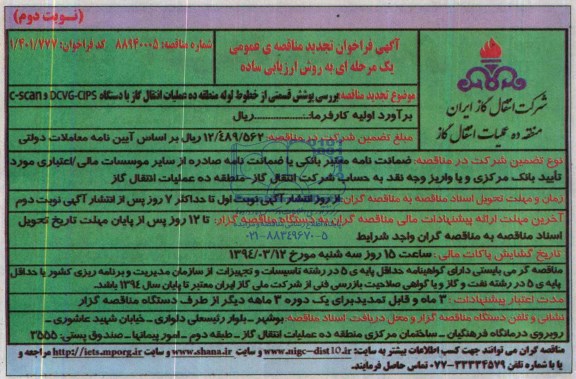 (نوبت دوم)
شرکت انتقال گاز ایران
منطقه ده عملیات انتقال گاز
آگهی فراخوان تجدید مناقصه ی عمومی
یک مرحله ای به روش ارزیابی ساده
شماره مناقصه: 8894005 کد فراخوان: 1/401/777
موضوع تجدید مناقصه: بررسی پوشش قسمتی از خطوط لوله منطقه ده عملیات انتقال گاز با دستگاه DCVG-CIPS و c-scan
برآورد اولیه کارفرما:..................ریال
مبلغ تضمین شرکت در مناقصه: 12/489/562 ریال بر اساس آیین نامه معاملات دولتی
نوع تضمین شرکت در مناقصه: ضمانت نامه معتبر بانکی یا ضمانت نامه صادره از سایر موسسات مالی/اعتباری مورد
تأیید بانک مرکزی و یا واریز وجه نقد به حساب شرکت انتقال گاز-منطقه ده عملیات انتقال گاز
زمان و مهلت تحویل اسناد مناقصه به مناقصه گران: از روز انتشار آگهی نوبت اول تا حداکثر 7 روز پس از انتشار آگهی نوبت دوم
آخرین مهلت ارائه پیشنهادات مالی مناقصه گران به دستگاه مناقصه گزار: تا 12 روز پس از پایان مهلت تاریخ تحویل
اسناد مناقصه به مناقصه گران واجد شرایط
021-88349670-5
تاریخ گشایش پاکات مالی: ساعت 15 روز سه شنبه مورخ 1394/03/12
مناقصه گر می بایستی دارای گواهینامه حداقل پایه ی 5 در رشته تاسیسات و تجهیزات از سازمان مدیریت و برنامه ریزی کشور یا حداقل
پایه ی 5 در رشته نفت و گاز و یا گواهی صلاحیت بازرسی فنی از شرکت ملی گاز ایران معتبر تا پایان سال 1394 باشد.
مدت اعتبار پیشنهادات: 3 ماه و قابل تمدید برای یک دوره 3 ماهه دیگر از طرف دستگاه مناقصه گزار
نشانی و تلفن دستگاه مناقصه گزار و محل دریافت اسناد مناقصه: بوشهر - بلوار رئیسعلی دلواری - خیابان شهید عاشوری -
روبروی درمانگاه فرهنگیان - ساختمان مرکزی منطقه ده عملیات انتقال گاز - طبقه دوم - امور پیمانها - صندوق پستی: 3555
مناقصه گران می توانند جهت کسب اطلاعات بیشتر به سایت: www.nigc-dist10.ir و سایت www.shana.ir و سایت http://iets.mporg.ir مراجعه و
یا با شماره تلفن 33334579-077 تماس حاصل فرمایند.